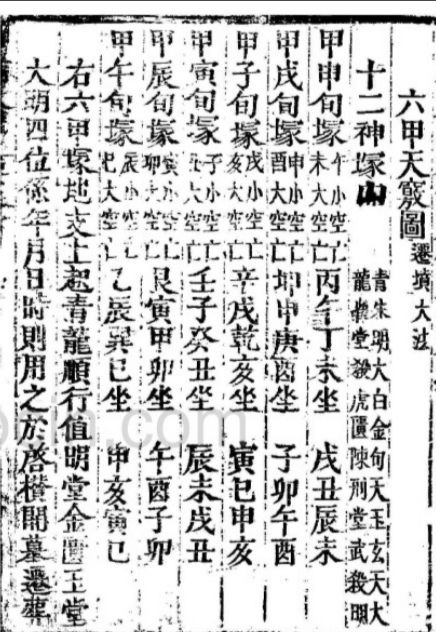 六甲天竅圖 遷墳大法
十二神塚山 青朱明大白金句天玉玄天大 龍雀堂殺虎匱陳刑堂武殺明
甲申旬塚 午小空亡 未大空亡 丙午丁未坐 戌丑辰未
甲戌旬塚 申小空亡 酉大空亡 坤申庚酉坐 子卯午酉
甲子旬塚 戌小空亡 亥大空亡 辛戌乾亥坐 寅巳申亥
甲寅旬塚 子小空亡 大空亡 壬子癸丑坐 辰未戌丑
甲辰旬塚 寅小空亡 卯大空亡 艮寅甲卯坐 午酉子卯
甲午旬塚 辰小空亡 巳大空亡 乙辰巽巳坐 申亥寅巳
右六甲塚地支上起青龍順行值明堂金匱玉堂
大明四位係年月日時則用之於啓攢開墓遷葬
in.com